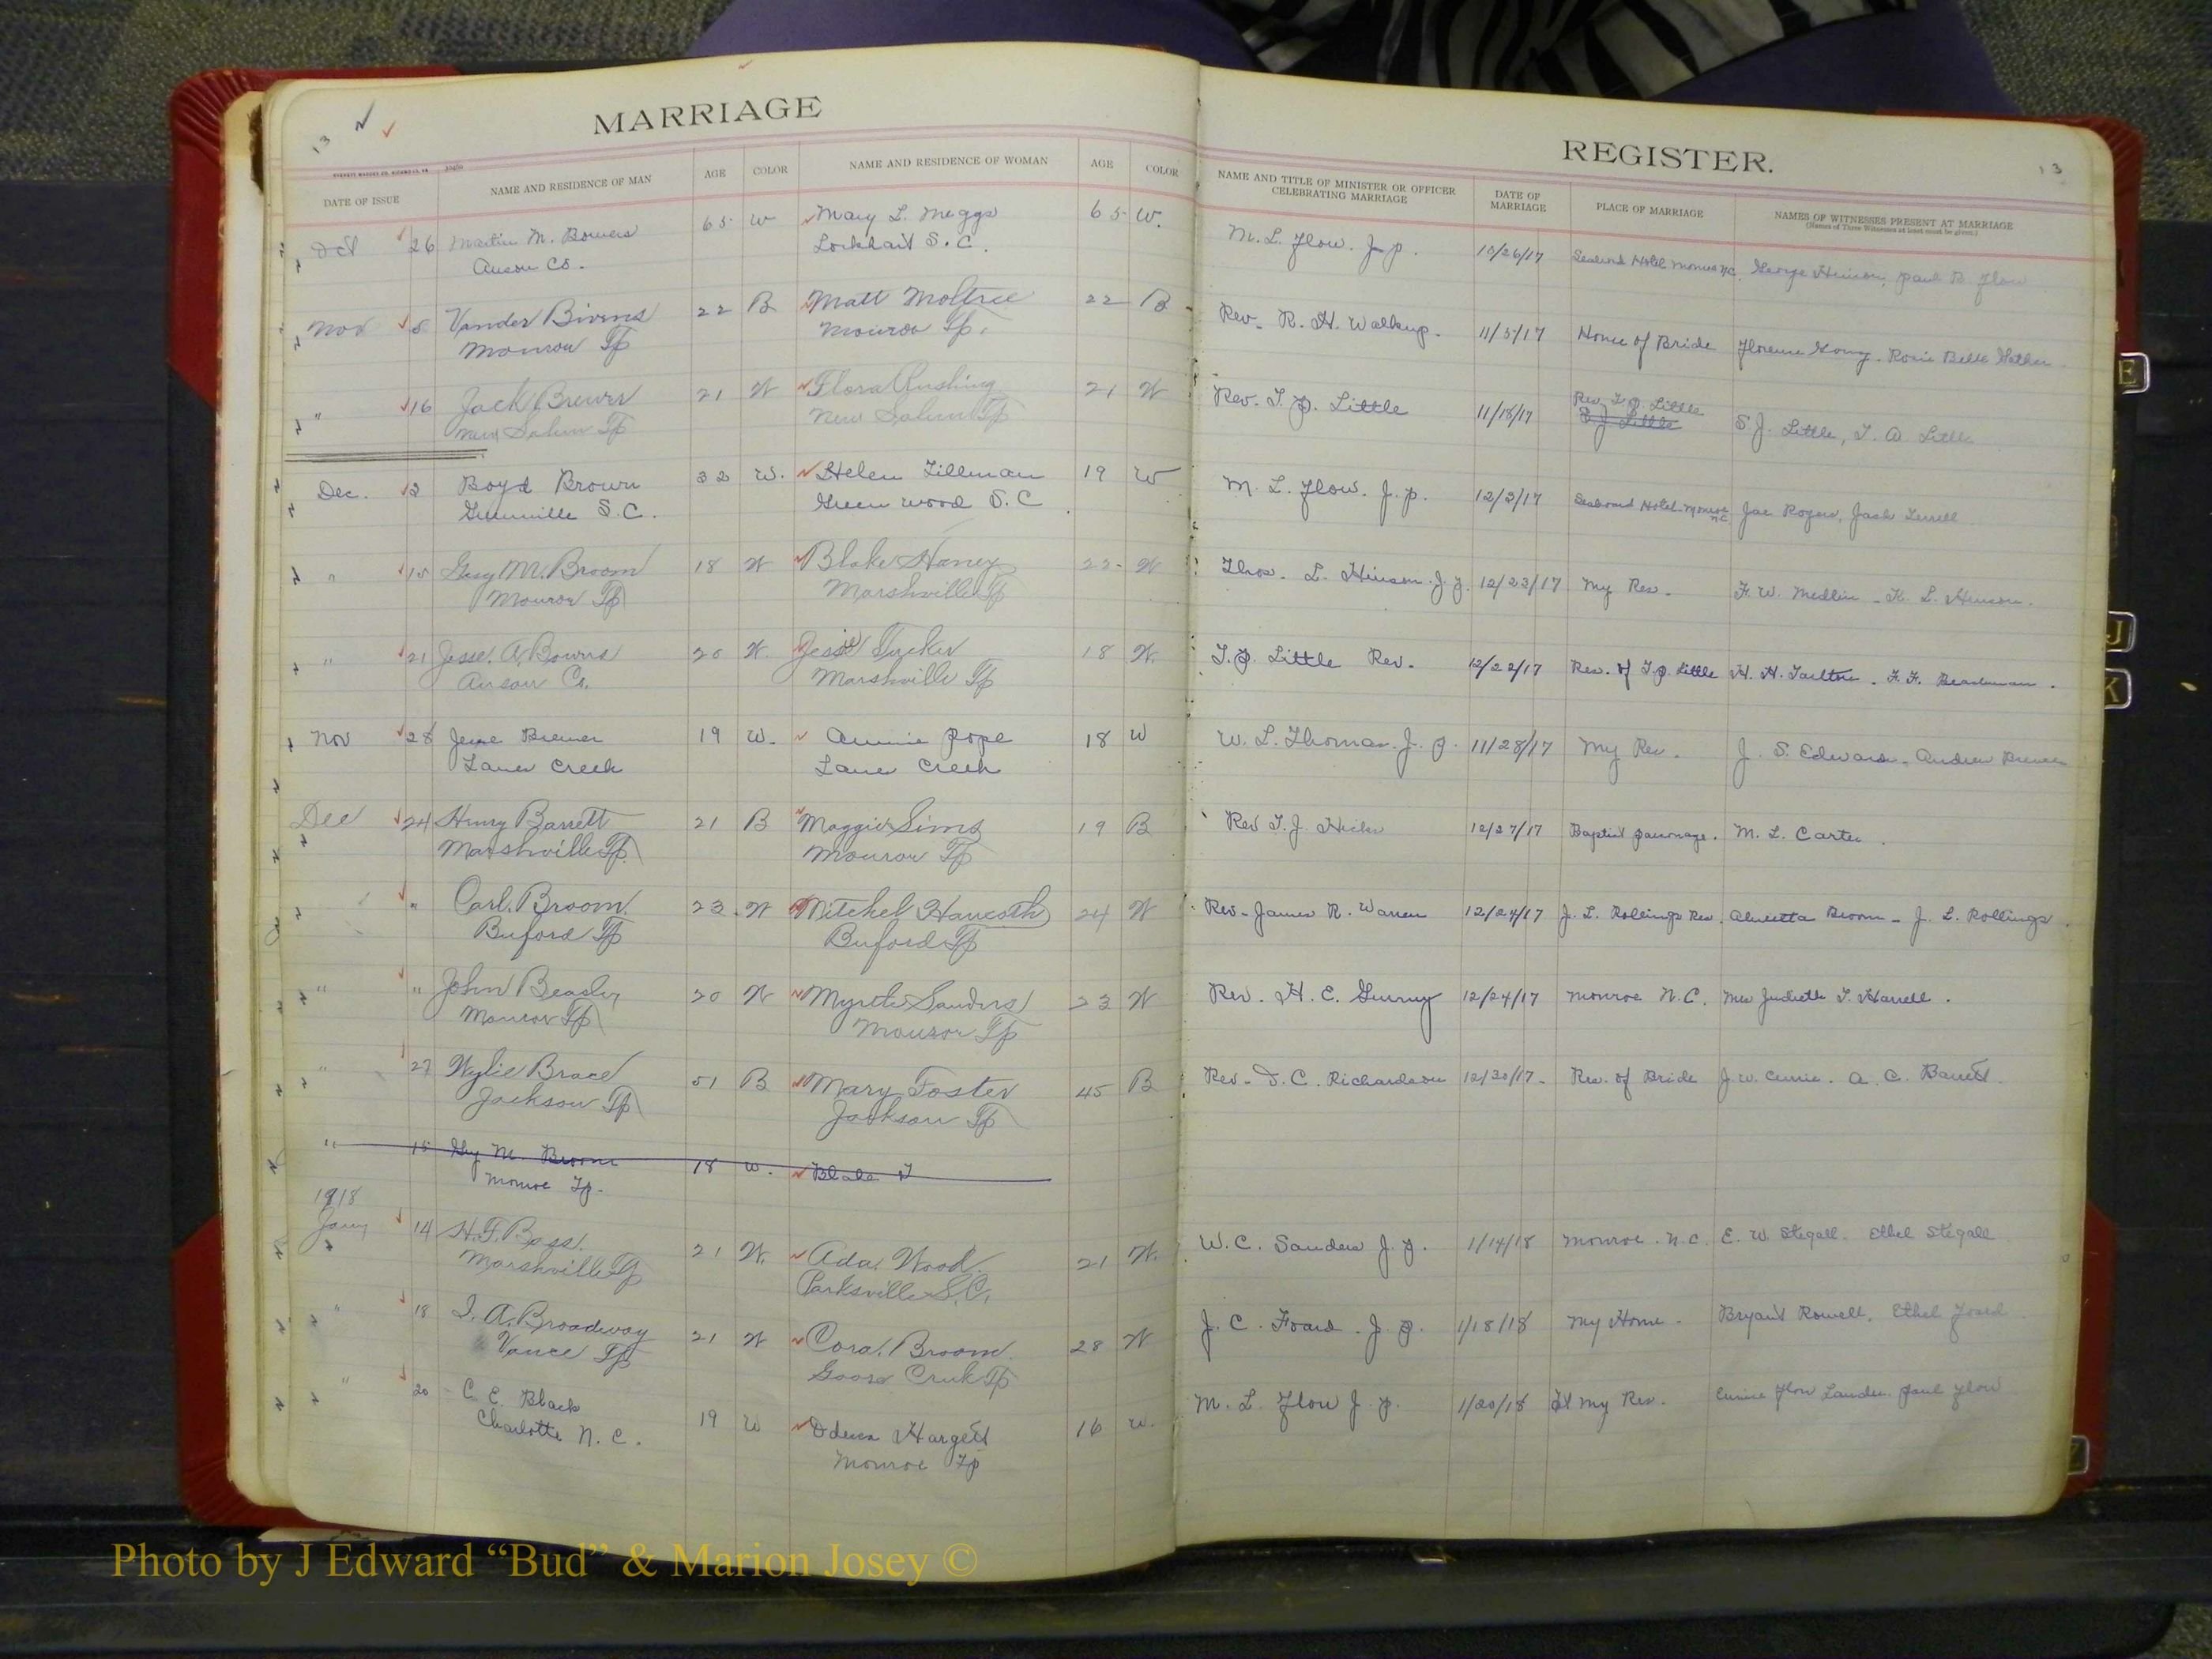 13
MARRIAGE
DATE OF ISSUE NAME AND RESIDENCE OF MAN AGE COLOR NAME AND RESIDENCE OF WOMAN AGE COLOR
Oct 26 Martin M. Bowers 65 W Mary L. Meggs 65 W.
Anson Co. Lockhart S.C.
Nov 5 Vander Bivens 22 B Matt Moltrie 22 B
Monroe Tp Monroe Tp.
" 16 Jack Brewer 21 W Flora Rushing 21 W
New Salem Tp New Salem Tp
Dec. 3 Boyd Brown 32 W. Helen Tillman 19 W
Greenville S.C. Green wood S.C
" 15 Guy M. Broom 18 W Blake Haney 22 W
Monroe Tp Marshville Tp
" 21 Jesse. A. Bowers 20 W. Jessie Tucker 18 W.
Anson Co. Marshville Tp
Nov 28 Jesse Brewer 19 W. Annie Pope 18 W
Lanes Creek Lanes Creek
Dec 24 Henry Barrett 21 B Maggie Sims 19 B
Marshville Tp. Monroe Tp
" Carl. Broom. 23. W Mitchel 24 W
Buford Tp Buford Tp
" " John Beasley 20 W Myrtle Sanders 23 W
Monroe Tp Monroe Tp
" 27 Wylie Brace 51 B Mary Foster 45 B
Jackson Tp Jackson Tp
" 15 Guy M. Broom 18 W. Blake
Monroe Tp.
1918
Jany 14 H.F. Bass. 21 W. Ada. Wood. 21 W.
Marshville Tp Parksville S.C.
" 18 I. A. Broadway 21 W Cora. Broom. 28 W
Vance Tp Goose Creek Tp
" 20 C. E. Black 19 W Odessa Hargett 16 W.
Charlotte N.C. Monroe Tp
REGISTER.
13
NAME AND TITLE OF MINISTER OR OFFICER CELEBRATING MARRIAGE DATE OF MARRIAGE PLACE OF MARRIAGE NAMES OF WITNESSES PRESENT AT MARRIAGE
(Names of Three Witnesses at least must be given.)
M. L. Flow. J.P. 10/26/17 Seaboard Hotel Monroe N.C. George Hinson, Paul R. Flow
Rev. R. H. Walkup. 11/5/17 Home of Bride Florence Rosie Belle
Rev. T. P. Little 11/18/17 Rev. T. P. Little S. J. Little, T. A. Little
S J Little
M. L. Flow. J.P. 12/3/17 Seaboard Hotel Monroe N.C. Joe Rogers, Jack Terrell
Thos. L. Hinson. J.P. 12/23/17 My Res. F. W. Medlin - K. L. Hinson.
T.P. Little Rev. 12/22/17 Res. of T.P. Little H. H. Tarlton. F. F.
W. L. Thomas. J.P. 11/28/17 My Res. J. S. Edwards. Andrew Brewer
Rev T. J. Hicks 12/27/17 Baptist parsonage. M. L. Carter.
Rev. James R. Warren 12/24/17 J. L. Rollings Res. Broom - J. L. Rollings.
Rev. H. E. Gurney 12/24/17 Monroe N.C. Mrs T. Harrell.
Rev. D. C. Richardson 12/30/17. Res. of Bride J. W. Currie. A. C. Barrett.
W. C. Sanders J.P. 1/14/18 Monroe. N.C. E. W. Stegall. Ethel Stegall
J. C. Foard. J.P. 1/18/18 My Home. Bryant Rowell. Ethel Foard
M. L. Flow J.P. 1/20/18 At my Res. Eunice Flow Paul Flow
Photo by J Edward “Bud” & Marion Josey ©